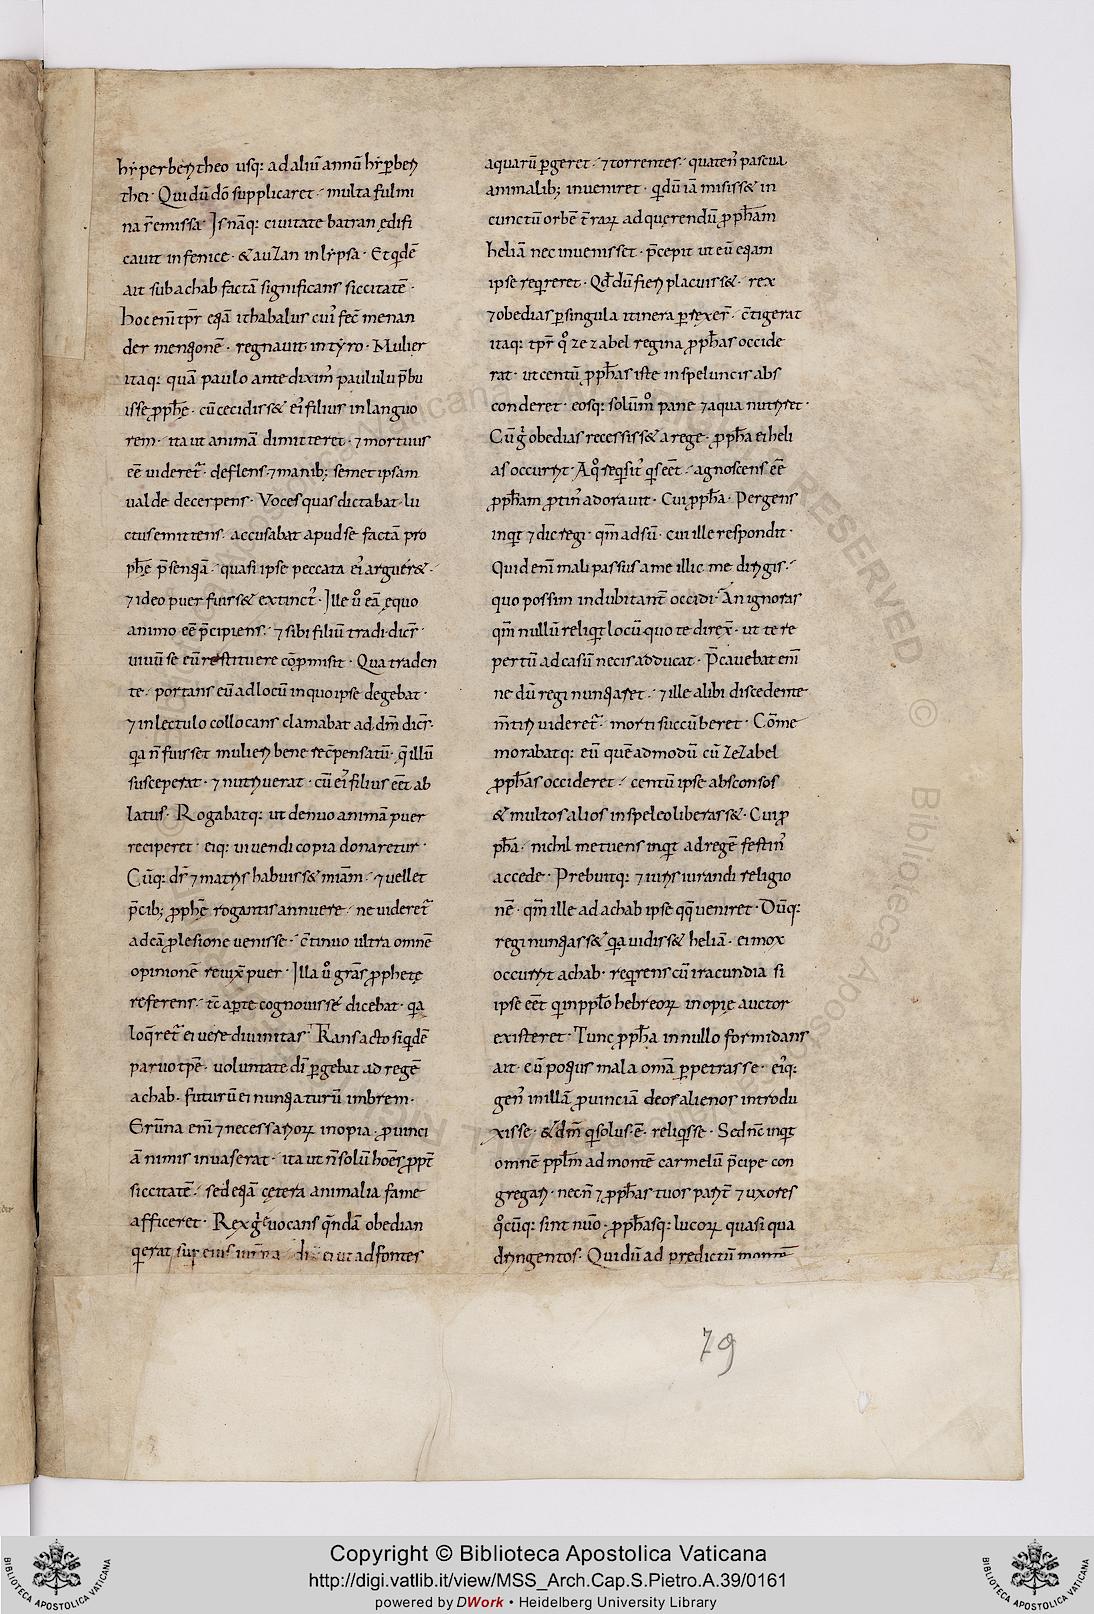 hẏperbeꝛetheo usq: adaliũ annũ hẏꝑbeꝛe
thei· Quidũ dõ supplicaret· multa fulmi
na r̃ emissa· Is nãq: civitate batran ędifi
cauit infenice· & auzan inlẏpsa· Et qdẽ
ait sub achab factã significans siccitatẽ·
hoc enĩ tpr̃ eqã ithabalus cui᾽ fec̃ menan
der menqonẽ· regnauit in tẏro· Mulier
itaq: quã paulo ante dixim᾽ paululũ p̃bu
isse ꝓph̃ę· cũ cecidiss& ei᾽ filius in languo
rem· ita ut animã dimitteret· ⁊ mortuus
eẽ uideret᷑· deflens ⁊ manib; semet ipsam
ualde decerpens· Voces quas dictabat lu
ctus emittens· accusabat apud se factã pro
ph̃ę p̃senqã· quasi ipse peccata ei᾽ arguer&·
⁊ ideo puer fuiss& extinct᾽· Ille u᷑o eã ęquo
animo eẽ p̃cipiens· ⁊ sibi filiũ tradi dicr̃·
uiuũ se eũ restituere cõꝓmisit· Qua traden
te· portans eũ ad locũ in quo ipse degebat·
⁊ in lectulo collocans clamabat ad dm̃ dicr̃·
qa ñ fuisset mulieꝛi bene rec̃pensatũ· q̃ illũ
susceperat· ⁊ nutꝛiuerat· cũ ei᾽ filius eẽt ab
latus· Rogabatq: ut denuo animã puer
reciperet· eiq: uiuendi copia donaretur·
Cũq: dr̃ ⁊ matꝛis habuiss& miãm· ⁊ uellet
p̃cib; ꝓph̃ę rogantis annuere· ne uideret᷑
ad eã ꝓ lesione uenisse· c̃tinuo ultra omnẽ
opinionẽ reuix̃ puer· Illa u᷑o gras̃ ꝓphetę
referens· tc̃ aꝑte cognouisse dicebat· qa
loq̃ret᷑ ei uere diuinitas· Transacto siqdẽ
paruo tp̃e· uoluntate di᷑ ꝑgebat ad regẽ
achab· futurũ ei nunqaturũ imbrem·
Erũna enĩ ⁊ necessaꝛioꝝ inopia· ꝓuinci
ã nimis inuaserat· ita ut ñ solũ hoẽs ꝓpt̃
siccitatẽ· sed eqã cętera animalia fame
afficeret· Rex g̃ uocans qñdã obedian
qui erat sup eius ad fontes
aquarũ ꝑgeret· ⁊ torrentes· quaten᾽ pascua
animalib; inueniret· qdũ iã misiss& in
cunctũ orbẽ t̃raꝝ ad querendũ ꝓph̃am
heliã nec inuenisset· p̃cepit ut eũ eqam
ipse reqreret· Qd̃ dũ fieꝛi placuiss&· rex
⁊ obedias ꝑ singula itinera ꝑrexer̃· c̃tigerat
itaq: tpr̃ q᷑o zezabel regina ꝓph̃as occide
rat· ut centũ ꝓph̃as iste in speluncis abs
conderet· eosq: solũm᷑o pane ⁊ aqua nutꝛiret·
Cũ g̃ obedias recessiss& a rege· ꝓph̃a ei heli
as occurꝛit· A q᷑o seqsit᾽ qs eẽt· agnoscens eẽ
ꝓph̃am ꝓtin᾽ adorauit· Cui ꝓph̃a· Pergens
inqt ⁊ dic regi· qm̃ adsũ· cui ille respondit·
Quid enĩ mali passus a me illic me diꝛigis·
quo possim indubitant̃ occidi· An ignoras
qm̃ nullũ reliqt locũ quo te direx̃· ut te re
pertũ ad casũ necis adducat· P̃cauebat enĩ
ne dũ regi nunqaret· ⁊ ille alibi discedente
m̃tiꝛi uideret᷑· morti succũberet· Cõme
morabatq: eũ quẽadmodũ cũ zezabel
ꝓph̃as occideret· centũ ipse absconsos
& multos alios in speleo liberass&· Cui ꝓ
ph̃a· nichil metuens inqt ad regẽ festin᾽
accede· Prebuitq: ⁊ iuꝛis iurandi religio
nẽ· qm̃ ille ad achab ipse qq̃ ueniret· Dũq:
regi nunqass& qa uidiss& heliã· ei mox
occurꝛit achab· reqrens cũ iracundia si
ipse eẽt q in pp̃lo hebreoꝝ inopię auctor
existeret· Tunc ꝓph̃a in nullo formidans
ait· eũ poqus mala oma̅ ꝑpetrasse· ei᾽q:
gen᾽ in illã ꝓuinciã deos alienos introdu
xisse· & dm̃ q solus·ẽ· reliqsse· Sed nc̃ inqt
omnẽ pp̃lm̃ ad montẽ carmelũ p̃cipe con
gregaꝛi· necñ ⁊ ꝓph̃as tuos parit̃ ⁊ uxores
q᷑ocũq: sint nũo· ꝓph̃asq: lucoꝝ quasi qua
dꝛingentos· Qui dũ ad predictũ montẽ
79
Copyright © Biblioteca Apostolica Vaticana
http://digi.vatlib.it/view/MSS_Arch.Cap.S.Pietro.A.39/0161
powered by DWork • Heidelberg University Library